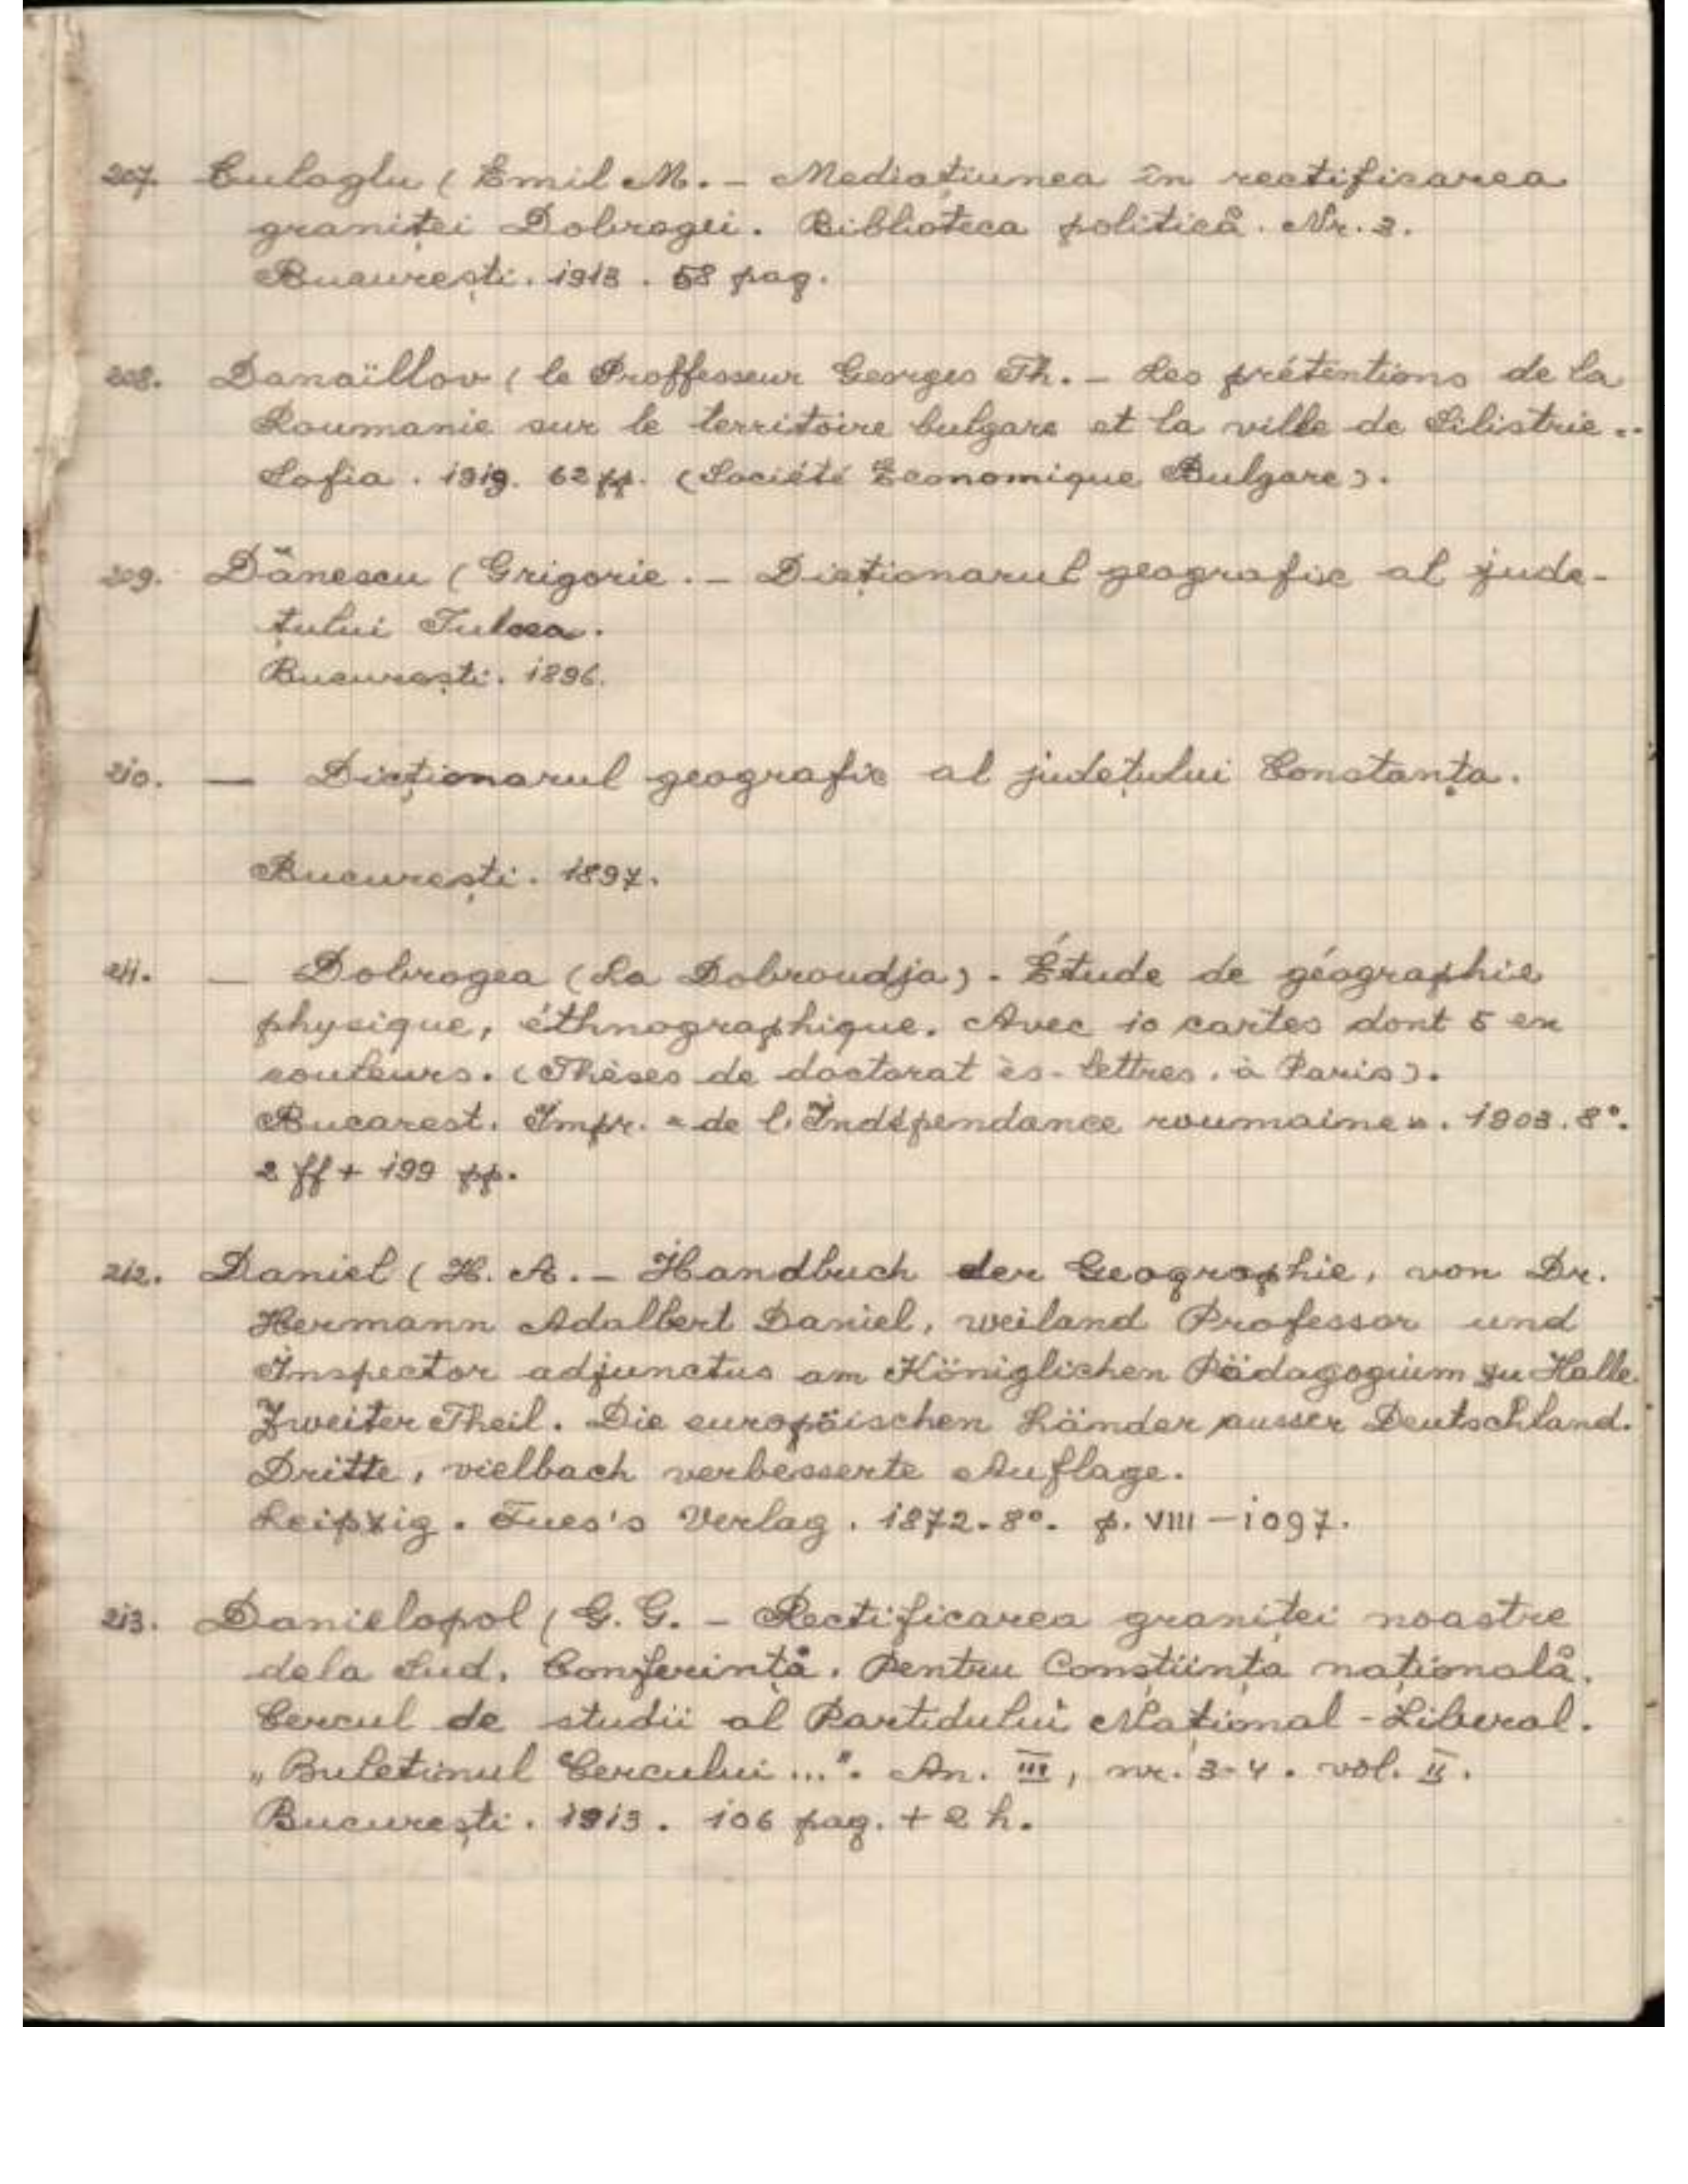 207. Culoglu ( Emil M. – Mediațiunea în rectificarea
graniței Dobrogei. Biblioteca politică. Nr. 3.
București. 1913. 58 pag.
208. Danaïllov ( le Proffesseur Georges Th. – Les prétentions de la
Roumanie sur le territoire bulgare et la ville de Silistrie..
Sofia. 1919. 62 pp. (Société Economique Bulgare).
209. Dănescu ( Grigorie. – Dicționarul geografic al jude-
țului Tulcea.
București. 1896.
210. — Dicționarul geografic al județului Constanța.
București. 1897.
211. — Dobrogea (La Dobroudja). Étude de géographie
physique, éthnographique. Avec 10 cartes dont 5 en
couleurs. (Thèses de doctorat ès-lettres, à Paris).
Bucarest. Impr. «de l'Indépendance roumaine». 1903. 8°.
2 ff + 199 pp.
212. Daniel ( H. A. – Handbuch der Geographie, von Dr.
Hermann Adalbert Daniel, weiland Professor und
Inspector adjunctus am Königlichen Pädagogium zu Halle.
Zweiter Theil. Die europäischen Länder ausser Deutschland.
Dritte, vielbach verbesserte Auflage.
Leipzig. Fues's Verlag. 1872. 8°. p. VIII – 1097.
213. Danielopol ( G. G. – Rectificarea graniței noastre
dela Sud. Conferință. Pentru Conștiința națională.
Cercul de studii al Partidului Național-Liberal.
„Buletinul Cercului...". An. III, nr. 3-4. vol. II.
București. 1913. 106 pag. + 2 h.